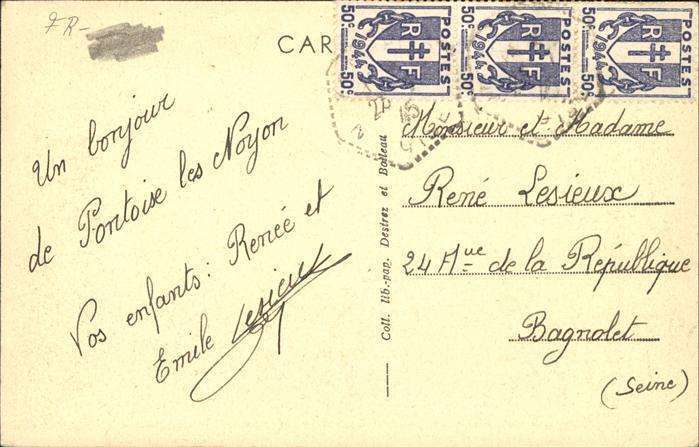 FR-
CAR
50c 1944 50c
POSTES
RF
50c 1944 50c
POSTES
RF
50c 1944 50c
POSTES
RF
Un bonjour
de Pontoise les Noyon
Vos enfants: Renée et
Emile Lesieux
Coll. lib.-pap. Destrez et Boileau
Monsieur et Madame
René Lesieux
24 Aue de la République
Bagnolet
(Seine)